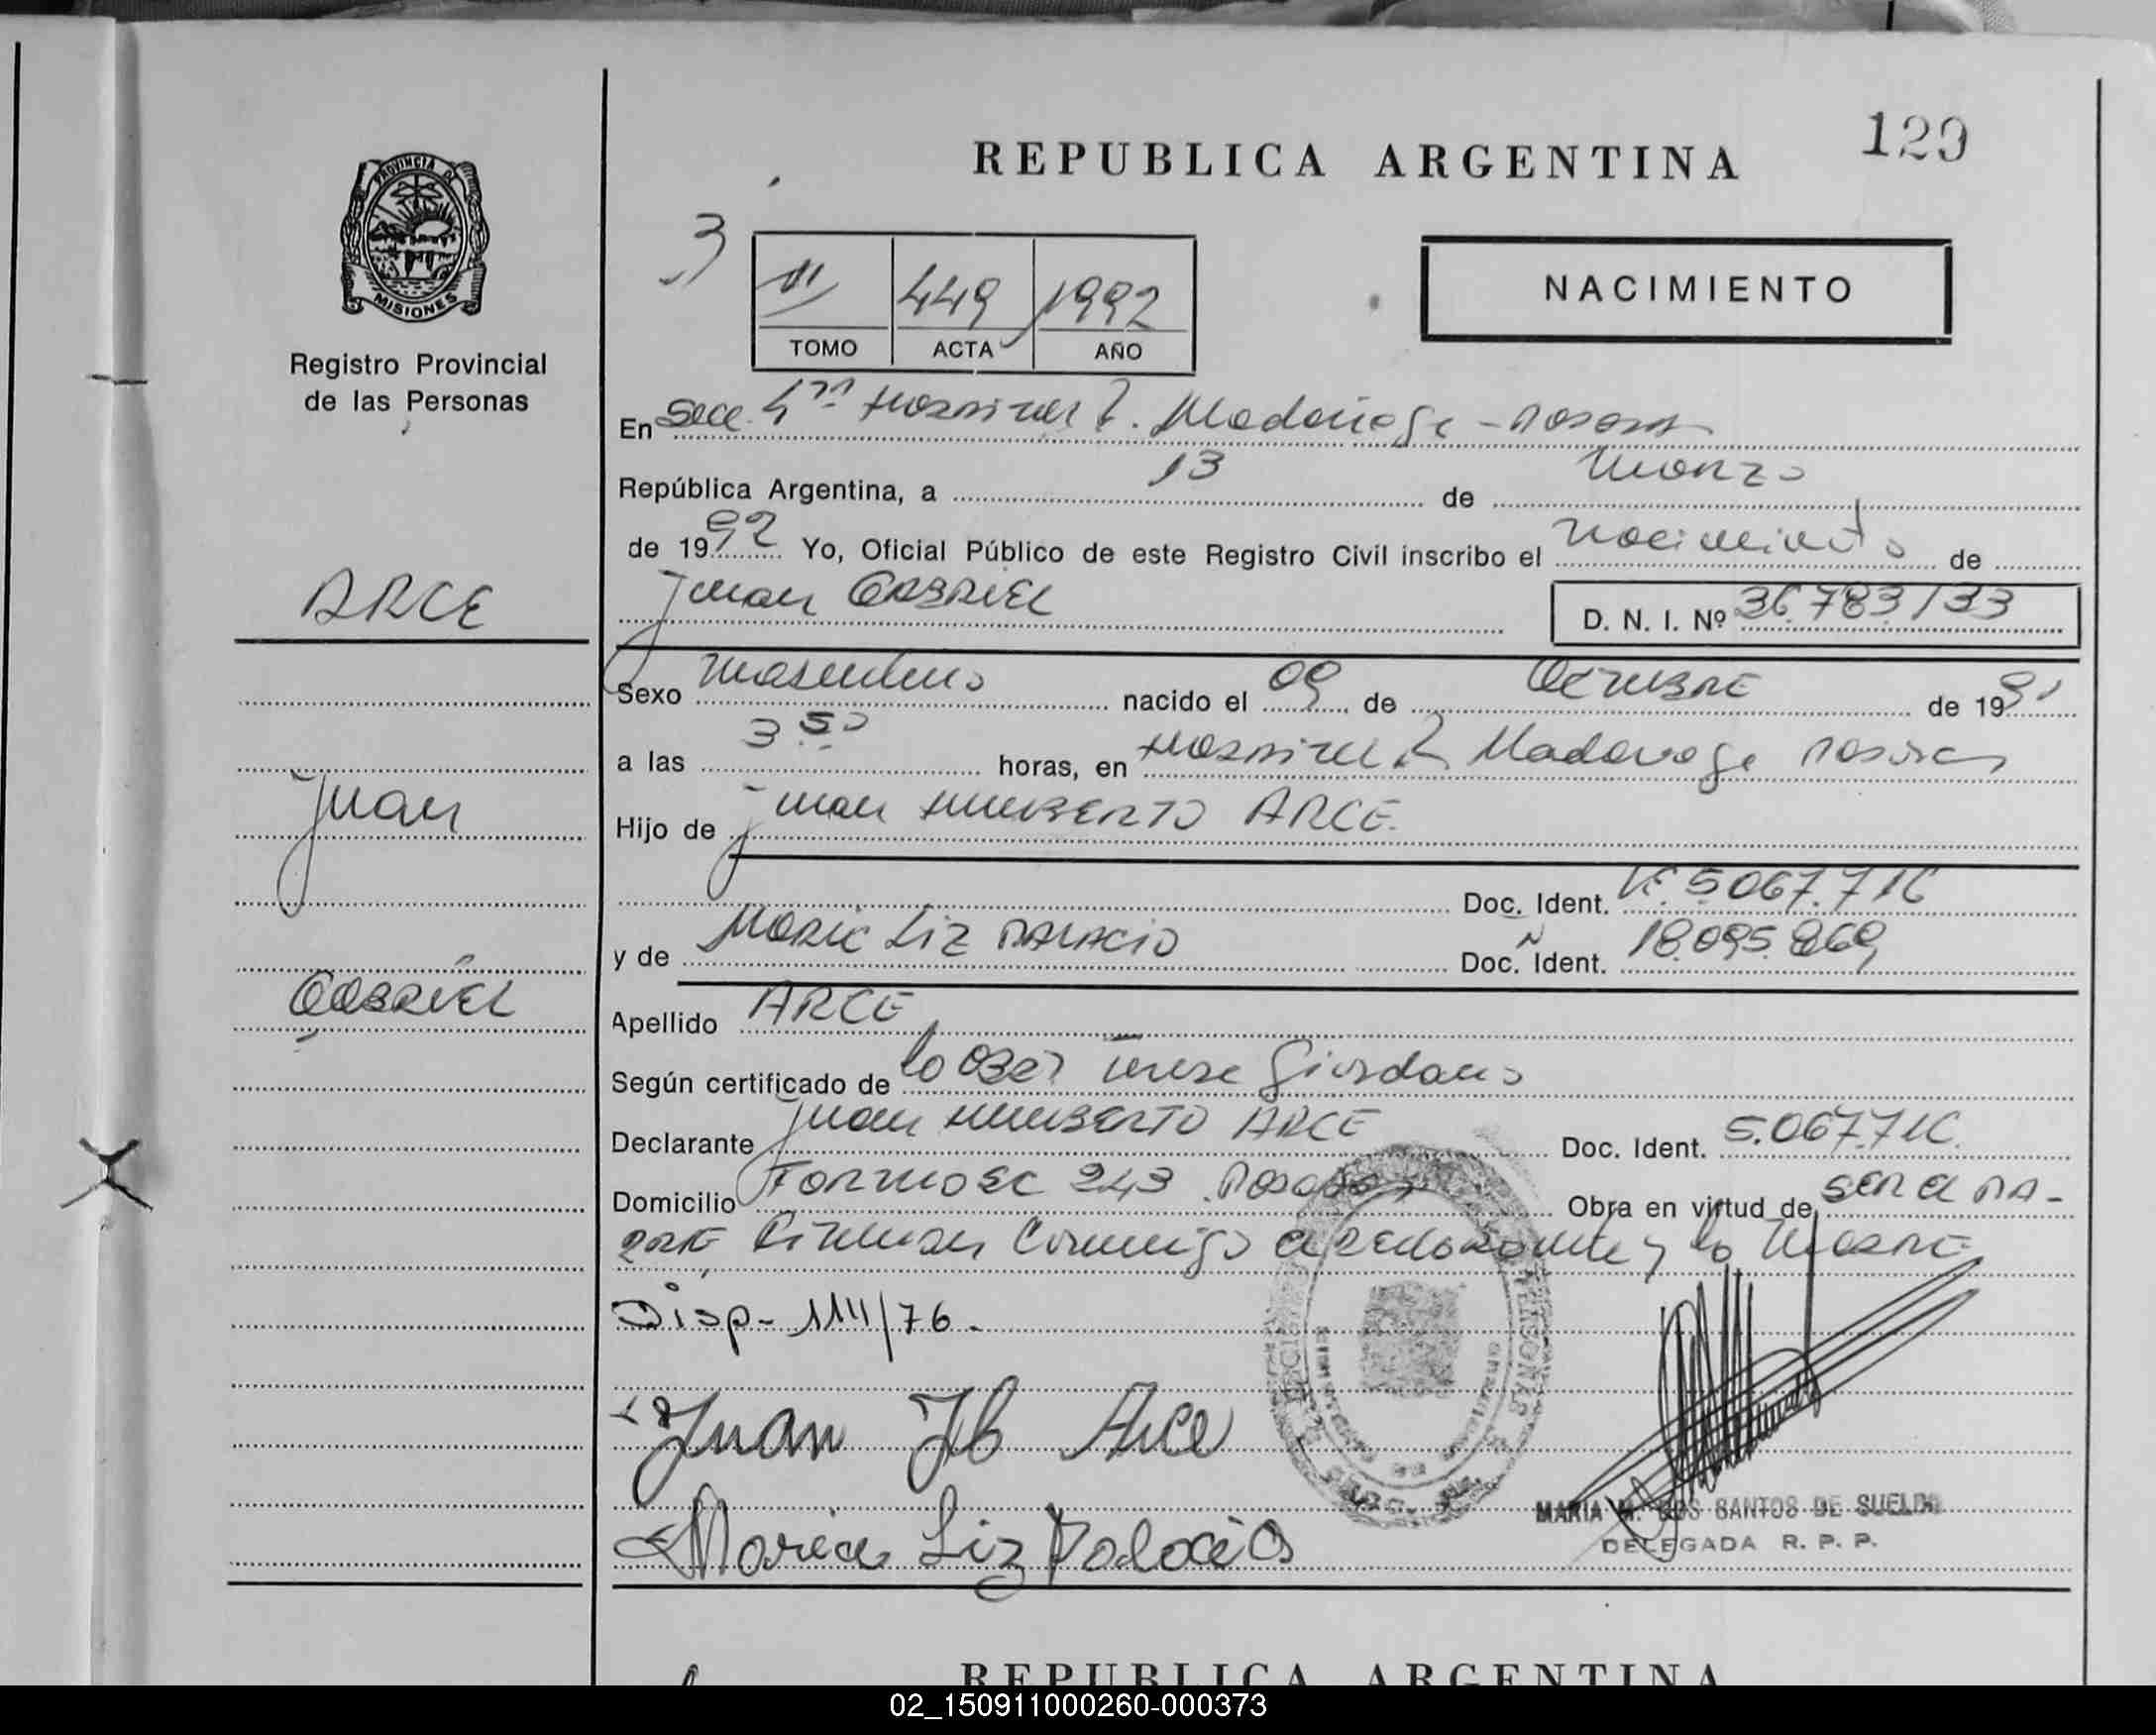 PROVINCIA DE
MISIONES
Registro Provincial
de las Personas
ARCE
Juan
GABRIEL
REPUBLICA ARGENTINA
129
3
II 449 1992
TOMO ACTA AÑO
NACIMIENTO
En Secc 4ta Hospital R. Madariaga - Posadas
República Argentina, a 13 de Marzo
de 1992 Yo, Oficial Público de este Registro Civil inscribo el nacimiento de
Juan GABRIEL D. N. I. Nº 36.783133
Sexo masculino nacido el 09 de OCTUBRE de 1991
a las 3 50 horas, en Hospital R Madariaga Posadas
Hijo de Juan HUMBERTO ARCE
Doc. Ident. 5067.716
y de MARIA LIZ PALACIO Doc. Ident. 18.095.869
Apellido ARCE
Según certificado de la OBST Giordano
Declarante Juan HUMBERTO ARCE Doc. Ident. 5.067.716
Domicilio FORMOSA 243 Posadas Obra en virtud de SER el PA-
DRE Firman Conmigo el y la MADRE
Disp- 1111/76.-
Juan H Arce
Maria Liz Palacio
MARIA M. DOS SANTOS DE SUELDO
DELEGADA R. P. P.
REPUBLICA ARGENTINA
02_150911000260-000373